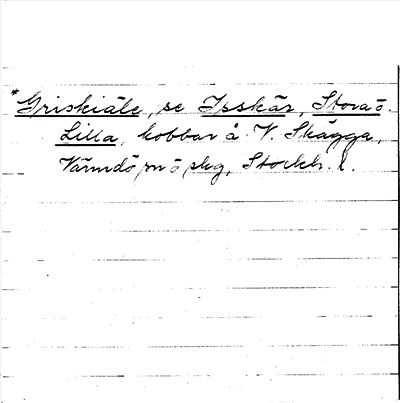 *Griskiäle, se Isskär, Stora o.
Lilla, kobbar å V. Skägga,
Värmdö sn o slg, Stockh. l.